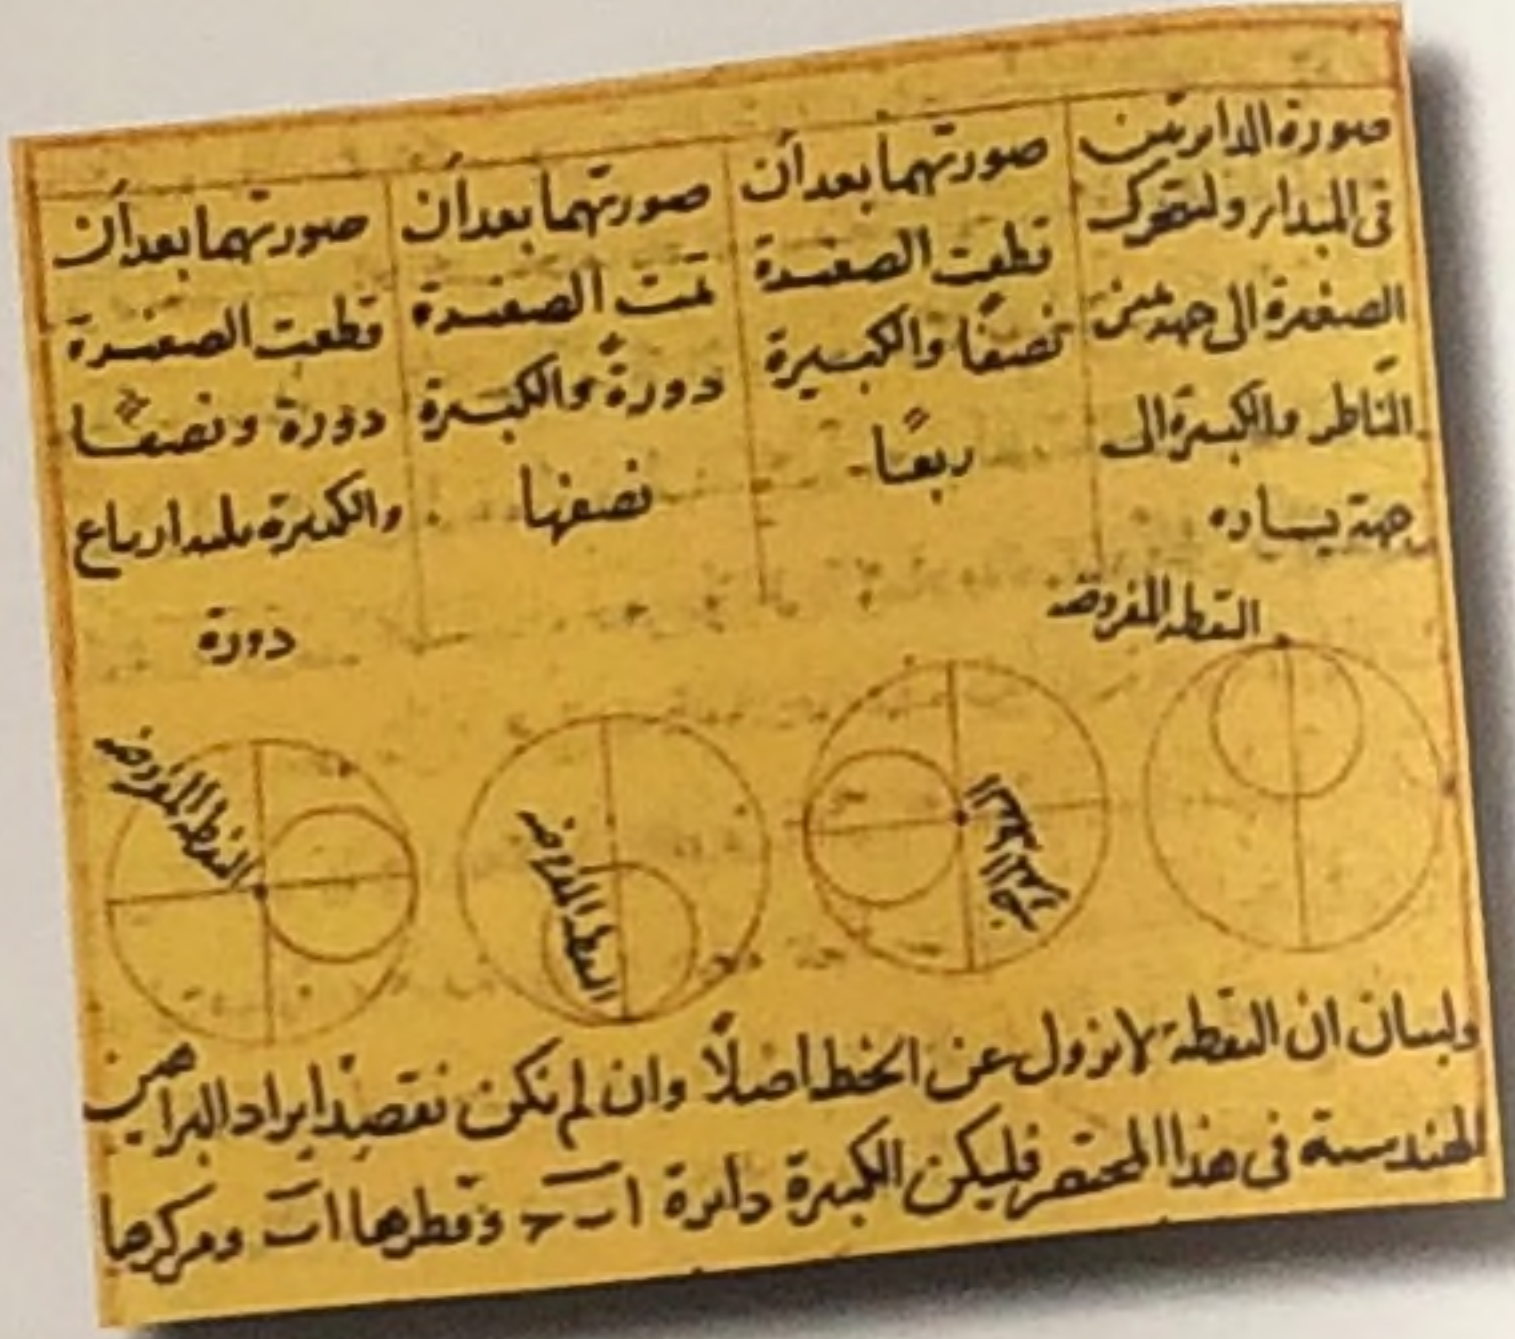 صورة الدائرتين
في المبدا ولتتحرك
الصغيرة الى جهة يمين
الناظر والكبيرة الى
جهة يساره
صورتهما بعد أن
قطعت الصغيرة
نصفًا والكبيرة
ربعًا
صورتهما بعد أن
تمت الصغيرة
دورةً والكبيرة
نصفها
صورتهما بعد أن
قطعت الصغيرة
دورة ونصفًا
والكبيرة ثلثة ارباع
دورة
النقطة المفروضة
النقطة المفروضة
النقطة المفروضة
النقطة المفروضة
ولبيان ان النقطة لا تزول عن الخط اصلًا وان لم نكن نقصد ايراد البراهين
الهندسية في هذا المختصر فليكن الكبيرة دايرة ا ب ج وقطرها ا ب ومركزها